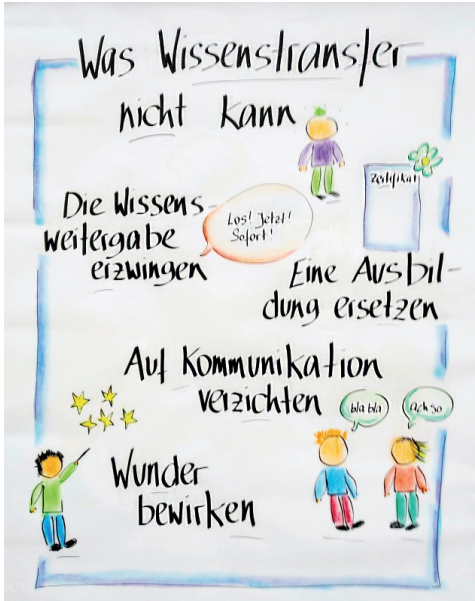 Was Wissenstransfer
nicht kann
Zertifikat
Die Wissens-
weitergabe
erzwingen
Los! Jetzt!
Sofort!
Eine Ausbil-
dung ersetzen
Auf Kommunikation
verzichten
bla bla
ach so
Wunder
bewirken